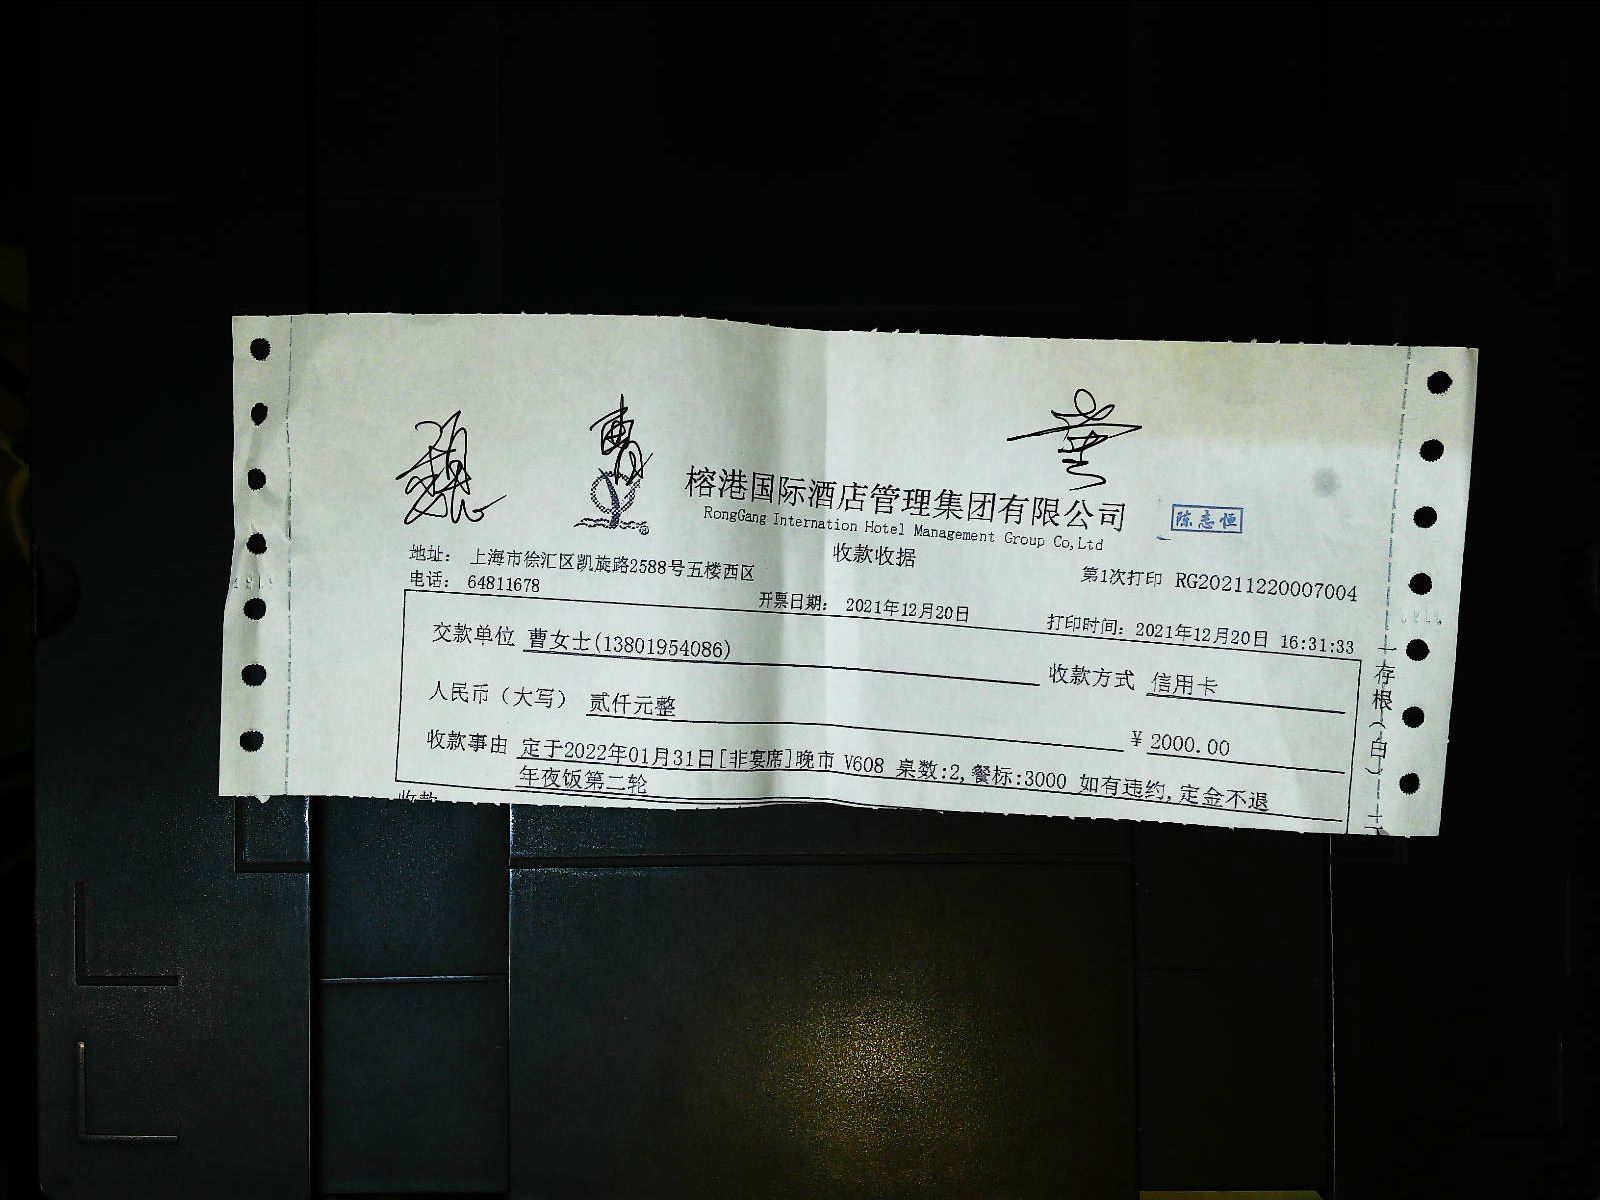 榕港国际酒店管理集团有限公司
RongGang Internation Hotel Management Group Co,Ltd
陈志恒
收款收据
地址： 上海市徐汇区凯旋路2588号五楼西区
电话： 64811678
第1次打印 RG20211220007004
开票日期： 2021年12月20日
打印时间：2021年12月20日 16:31:33
交款单位 曹女士(13801954086)
收款方式 信用卡
人民币（大写） 贰仟元整
￥2000.00
收款事由 定于2022年01月31日[非宴席]晚市 V608 桌数:2,餐标:3000 如有违约,定金不退
年夜饭第二轮
存根(白)